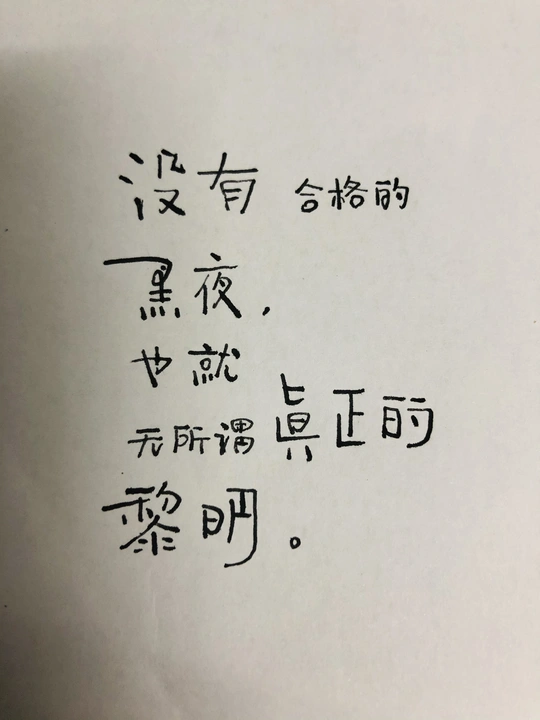 没有 合格的
黑夜，
也就
无所谓 真正的
黎明。